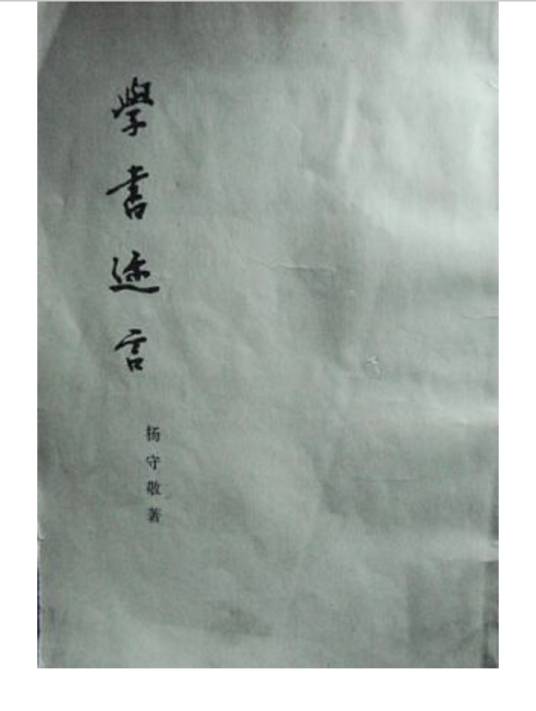 學書迩言
杨守敬著